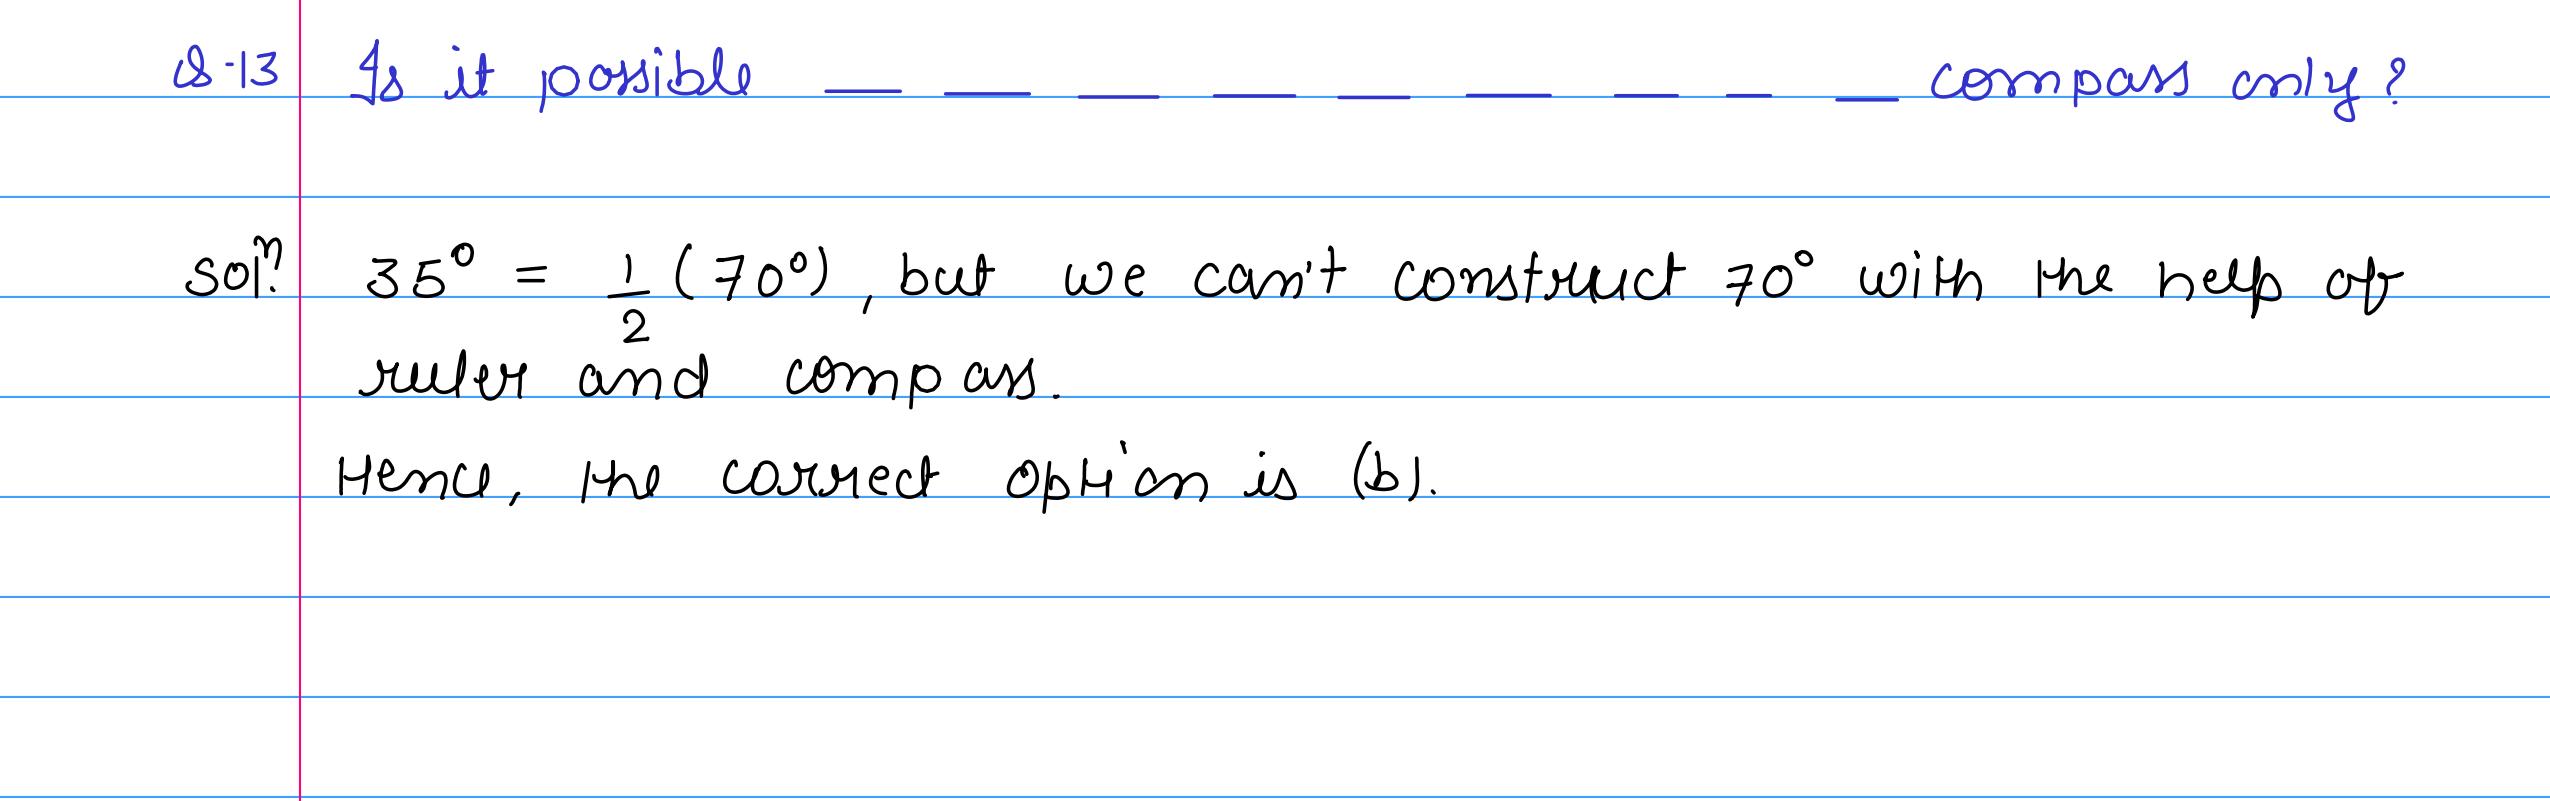 Q-13 Is it possible _ _ _ _ _ _ _ _ _ compass only?
Solⁿ. 35° = 1/2 (70°), but we can't construct 70° with the help of
ruler and compass.
Hence, the correct option is (b).